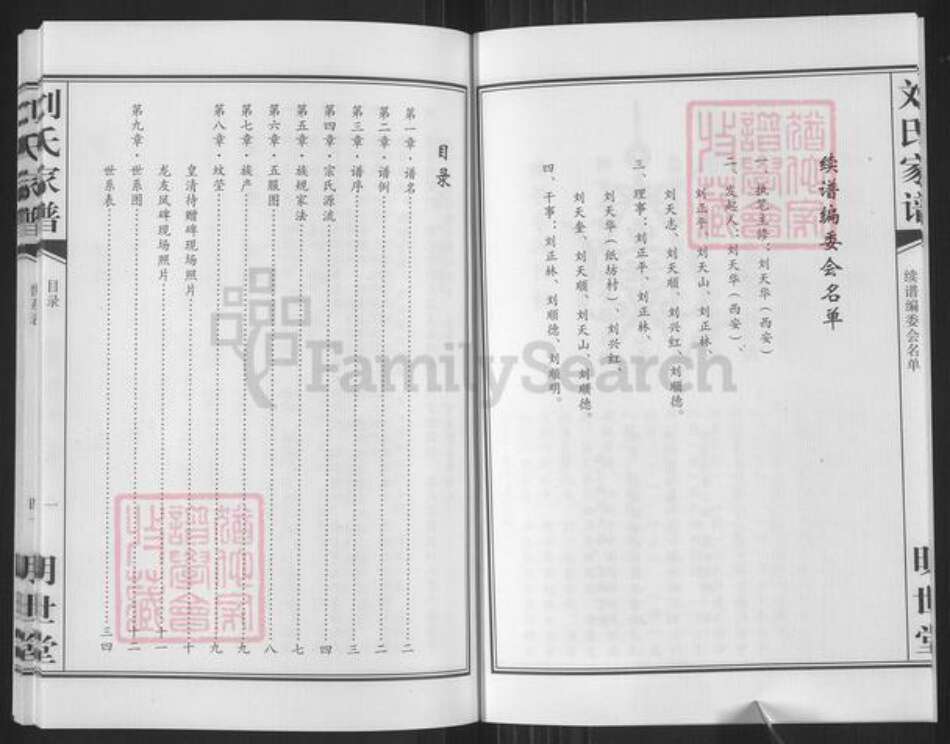 刘氏家谱
续谱编委会名单
明世堂
续谱编委会名单
一、执笔主修：刘天华（西安）
二、发起人：刘天华（西安）、
刘正平、刘天山、刘正林、
刘天志、刘天顺、刘兴红、刘顺德。
三、理事：刘正平、刘正林、
刘天华（纸坊村）、刘兴红、
刘天奎、刘天顺、刘天山、刘顺德。
四、干事：刘正林、刘顺德、刘顺明。
目录
第一章·谱名……二
第二章·谱例……二
第三章·谱序……三
第四章·宗氏源流……四
第五章·族规家法……七
第六章·五服图……八
第七章·族产……九
第八章·坟茔……九
皇清待赠碑现场照片……十
龙友凤碑现场照片……十一
第九章·世系图……十二
世系表……三四
刘氏家谱
目录
一
明世堂
FamilySearch